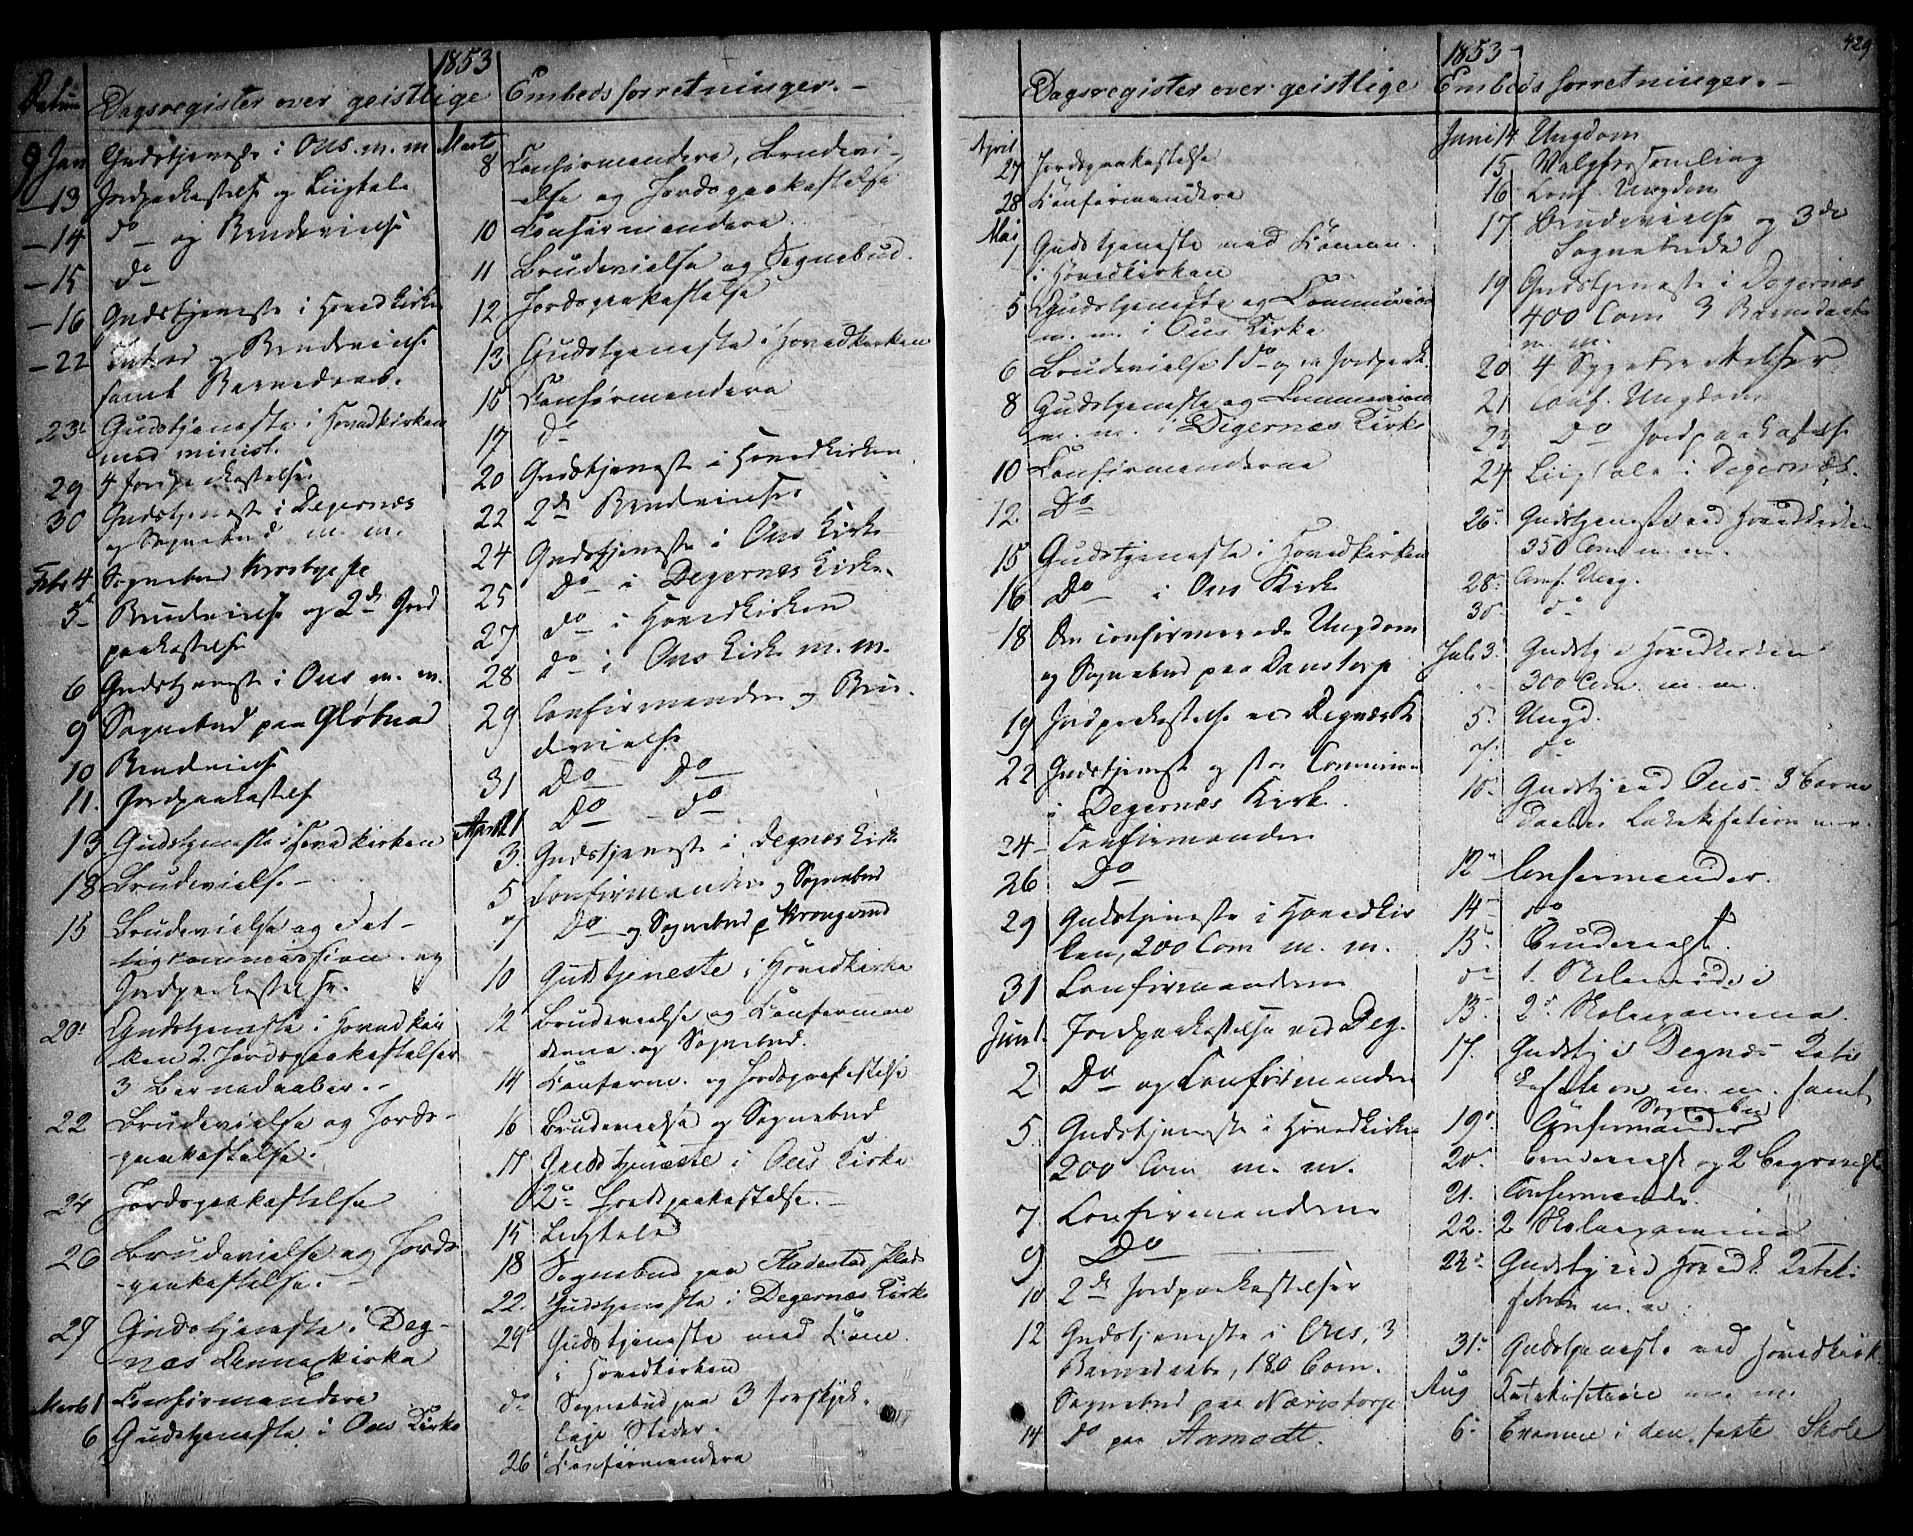 1853
Datum Dagsregister over geistlige Embedsforretninger. -
9 Jan Gudstjeneste i Ous. m. m
- 13 Jordpaakastelse og Liigtale
- 14 do - og Brudevielse
- 15 do
- 16 Gudstjeneste i Hovedkirken
- 22 og Brudevielse
samt Barnedaab.
23 Gudstjeneste i Hovedkirken
med minist.
29 4 Jordpaakastelse
30 Gudstjeneste i Degernæs
og Sognebud m. m.
Febr 4 Sognebud Krosby
5 Brudevielse og 2de Jord
paakastelse
6 Gudstjeneste i Ous m. m.
9 Sognebud paa Gløbna
10 Brudevielse
11. Jordpaakastelse
13 Gudstjeneste i Hovedkirken
18 Brudevielse -
15 Brudevielse og Fat-
tigkommission og
Jordpaakastelse.
20 Gudstjeneste i Hovedkir
ken 2 Jordspaakastelser
3 Barnedaaber. -
22 Brudevielse og Jords-
-paakastelse.
24 Jordspaakastelse
26 Brudevielse og Jords
-paakastelse. -
27 Gudstjeneste i Deg-
næs Annexkirke
Marts 1 Confirmanderne
6 Gudstjeneste i Ous Kirke
Marts
8 Confirmandere, Brudevi-
-else og Jordspaakastelse
10 Confirmandere
11 Brudevielse og Sognebud.
12 Jordspaakastelse
13 Gudstjeneste i Hovedkirken
15 Confirmandere
17 do
20 Gudstjeneste i Hovedkirken
22 2de Brudevielser
24 Gudstjeneste i Ous Kirke
25 Do - i Degernæs Kirke
27 do - i Hovedkirken
28 do i Ous Kirke m. m.
29 Confirmandere og Bru-
devielse
31 Do Do
April 1 Do - do
3. Gudstjeneste i Degnæs Kirke
5 Confirmandere og Sognebud
7 Do - og Sognebud p Krongsrud
10 Gudstjeneste i Hovedkirke
12 Brudevielse og Confirman
derne og Sognebud.
14 Confirm. og Jordspaakastelse
16 Brudevielse og Sognebud
17 Gudstjeneste i Ous Kirke
2de Jordspaakastelse. -
15 Liigtale
18 Sognebud paa Hadestad Plads
22. Gudstjeneste i Degernæs Kirke
24 Gudstjeneste med Com.
i Hovedkirken
do Sognebud paa 3 forskjel-
lige Steder.
26 Confirmandere
429
1853
Dagsregister over geistlige Embedsforretninger. -
April
27 Jordspaakastelse
28 Confirmandere
Mai
1 Gudstjeneste med Commun.
i Hovedkirken
5 Gudstjeneste og Communion
m. m. i Ous Kirke
6 Brudevielse 1 do og en Jordpaak.
8 Gudstjeneste og Communion
m. m. i Degernæs Kirke
10 Confirmanderne
12. Do
15 Gudstjeneste i Hovedkirken
16 Do - i Ous Kirke
18 Den confirmerede Ungdom
og Sognebud paa Danstorp
19 Jordpaakastelse ved Degnæs K
22 Gudstjeneste og stor Communion
i Degernæs Kirke.
24 - Confirmandere
26 Do
29 Gudstjeneste i Hovedkir
ken, 200 Com m. m.
31 Confirmandere
Juni 1. Jordpaakastelse ved Deg.
2 Do og Confirmandere
5. Gudstjeneste i Hovedkirken
200 Com m. m.
7 Confirmandere
9 Do
10 2de Jordpaakastelser
12 Gudstjeneste i Ous, 3
Barnedaabe, 180 Com.
Sognebud paa Næristorp
14 do paa Aamodt.
Juni 14 Ungdom
15 Valgforsamling
16 Conf. Ungdom
17 Brudevielse og 3de
Sognebude
19 Gudstjeneste i Degernæs
400 Com 3 Barnedaabe
m. m.
20 4 Sygebesøgelser
21 Conf. Ungdom
23 Do Jordpaakastelse
24 Liigtale i Degernæs.
26 Gudstjeneste ved Hovedkirken
350 Com m. m.
28 Conf. Ung.
30 do
Juli 3. Gudstj i Hovedkirken
300 Com. m. m.
5. Ungd.
7. do
10. Gudstj ved Ous - 3 Barne
daaber Catekisation m. m.
12 Confirmander.
14 - do
15 - Brudevielse.
do 1. Skolemøde i
13. 2de Skoleexamina.
17. Gudstj i Degnæs - Cate
kisation m. m. samt
Sognebud
19 Confirmander
20. Brudevielse og 2 Begravelse
21. Confirmande.
22. 2 Skoleexamina
24. Gudstj ved Hovedk. Cateki-
sation m. m.
31. Gudstjeneste ved Hovedkirk.
Aug Katekisation m. m.
6. Examen i den faste Skole